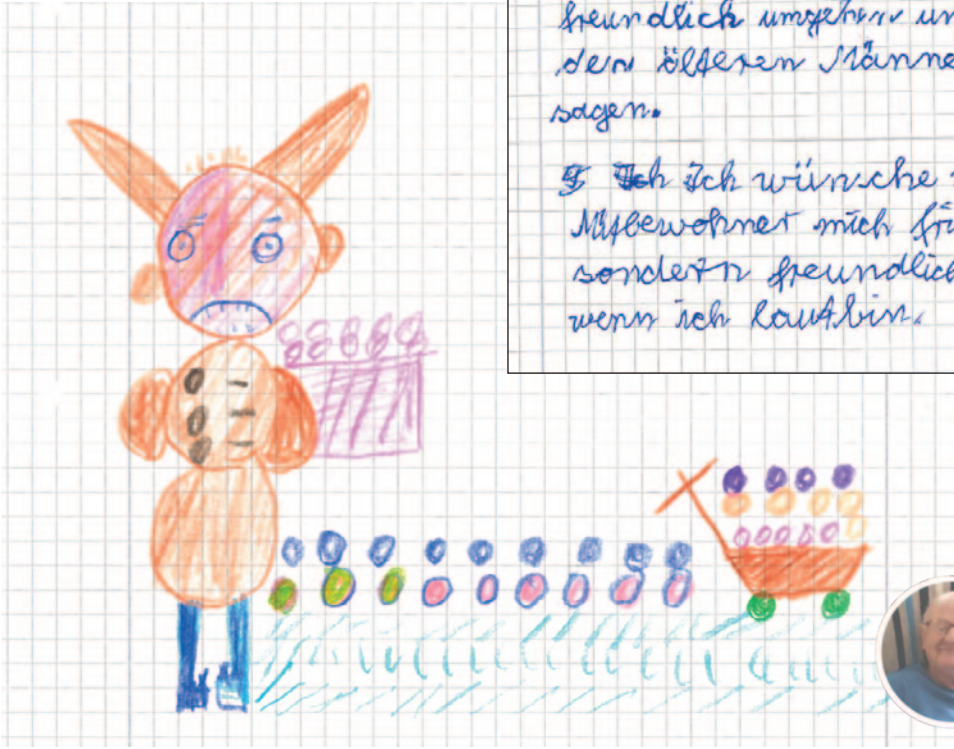 freundlich umgehen un
den älteren Männe
sagen.
Ich Ich wünsche
Mitbewohner mich frü
sondern freundlich
wenn ich laut bin.